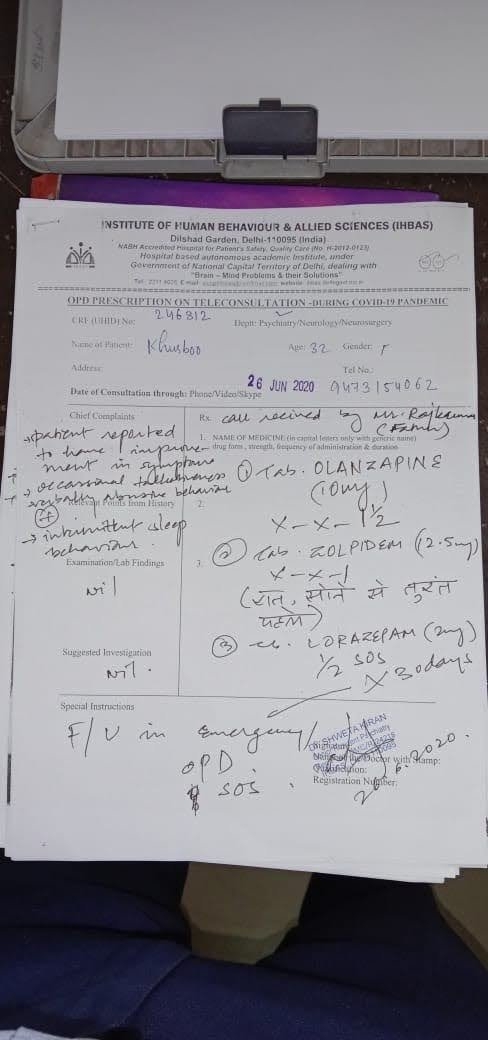 INSTITUTE OF HUMAN BEHAVIOUR & ALLIED SCIENCES (IHBAS)
Dilshad Garden, Delhi-110095 (India)
NABH Accredited Hospital for Patient's Safety, Quality Care (No. H-2012-0123)
Hospital based autonomous academic Institute, under
Government of National Capital Territory of Delhi, dealing with
"Brain - Mind Problems & their Solutions"
OPD PRESCRIPTION ON TELECONSULTATION -DURING COVID-19 PANDEMIC
CRF (UHID) No: 246812 Deptt: Psychiatry/Neurology/Neurosurgery
Name of Patient: Khusboo Age: 32 Gender: F
Address: Tel No.:
Date of Consultation through: Phone/Video/Skype 26 JUN 2020 9473154062
Chief Complaints
→ patient reported
to have improve-
ment in symptoms
→ occasional talkativeness
→ verbally abusive behavior
Relevant Points from History
→ intermittent sleep
behaviour.
Examination/Lab Findings
Nil
Suggested Investigation
Nil.
Rx. call recived by Mr. Rajkumar
(Father)
1. NAME OF MEDICINE (in capital letters only with generic name)
drug form, strength, frequency of administration & duration
① Tab. OLANZAPINE
(10mg)
2.
X-X-1½
3.
② Tab. ZOLPIDEM (12.5mg)
X-X-1
(रात, सोने से तुरंत
पहले)
③ Tab. LORAZEPAM (2mg)
1/2 SOS
X 30days
Special Instructions
F/U in Emergency/
OPD.
SOS.
Dr. SHWETA KIRAN
Name of the Doctor with Stamp:
Designation:
Registration Number:
26.6.2020.